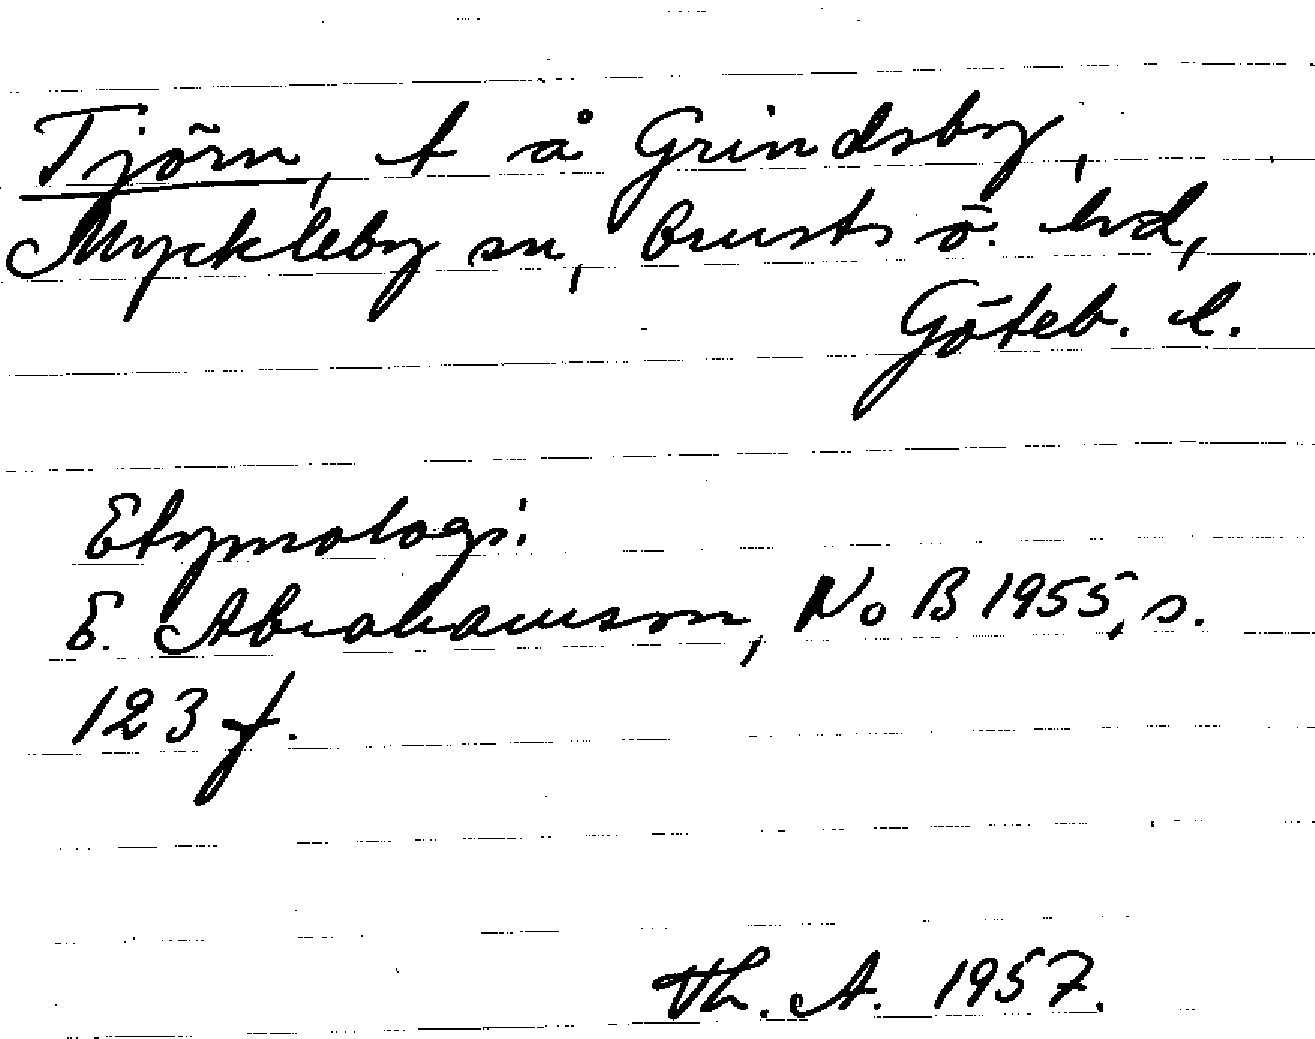 Tjörn, t å Grindsby,
Myckleby sn, Orusts ö. hd,
Göteb. l.
Etymologi:
E. Abrahamson, NoB 1955, s.
123 f.
Th. A. 1957.